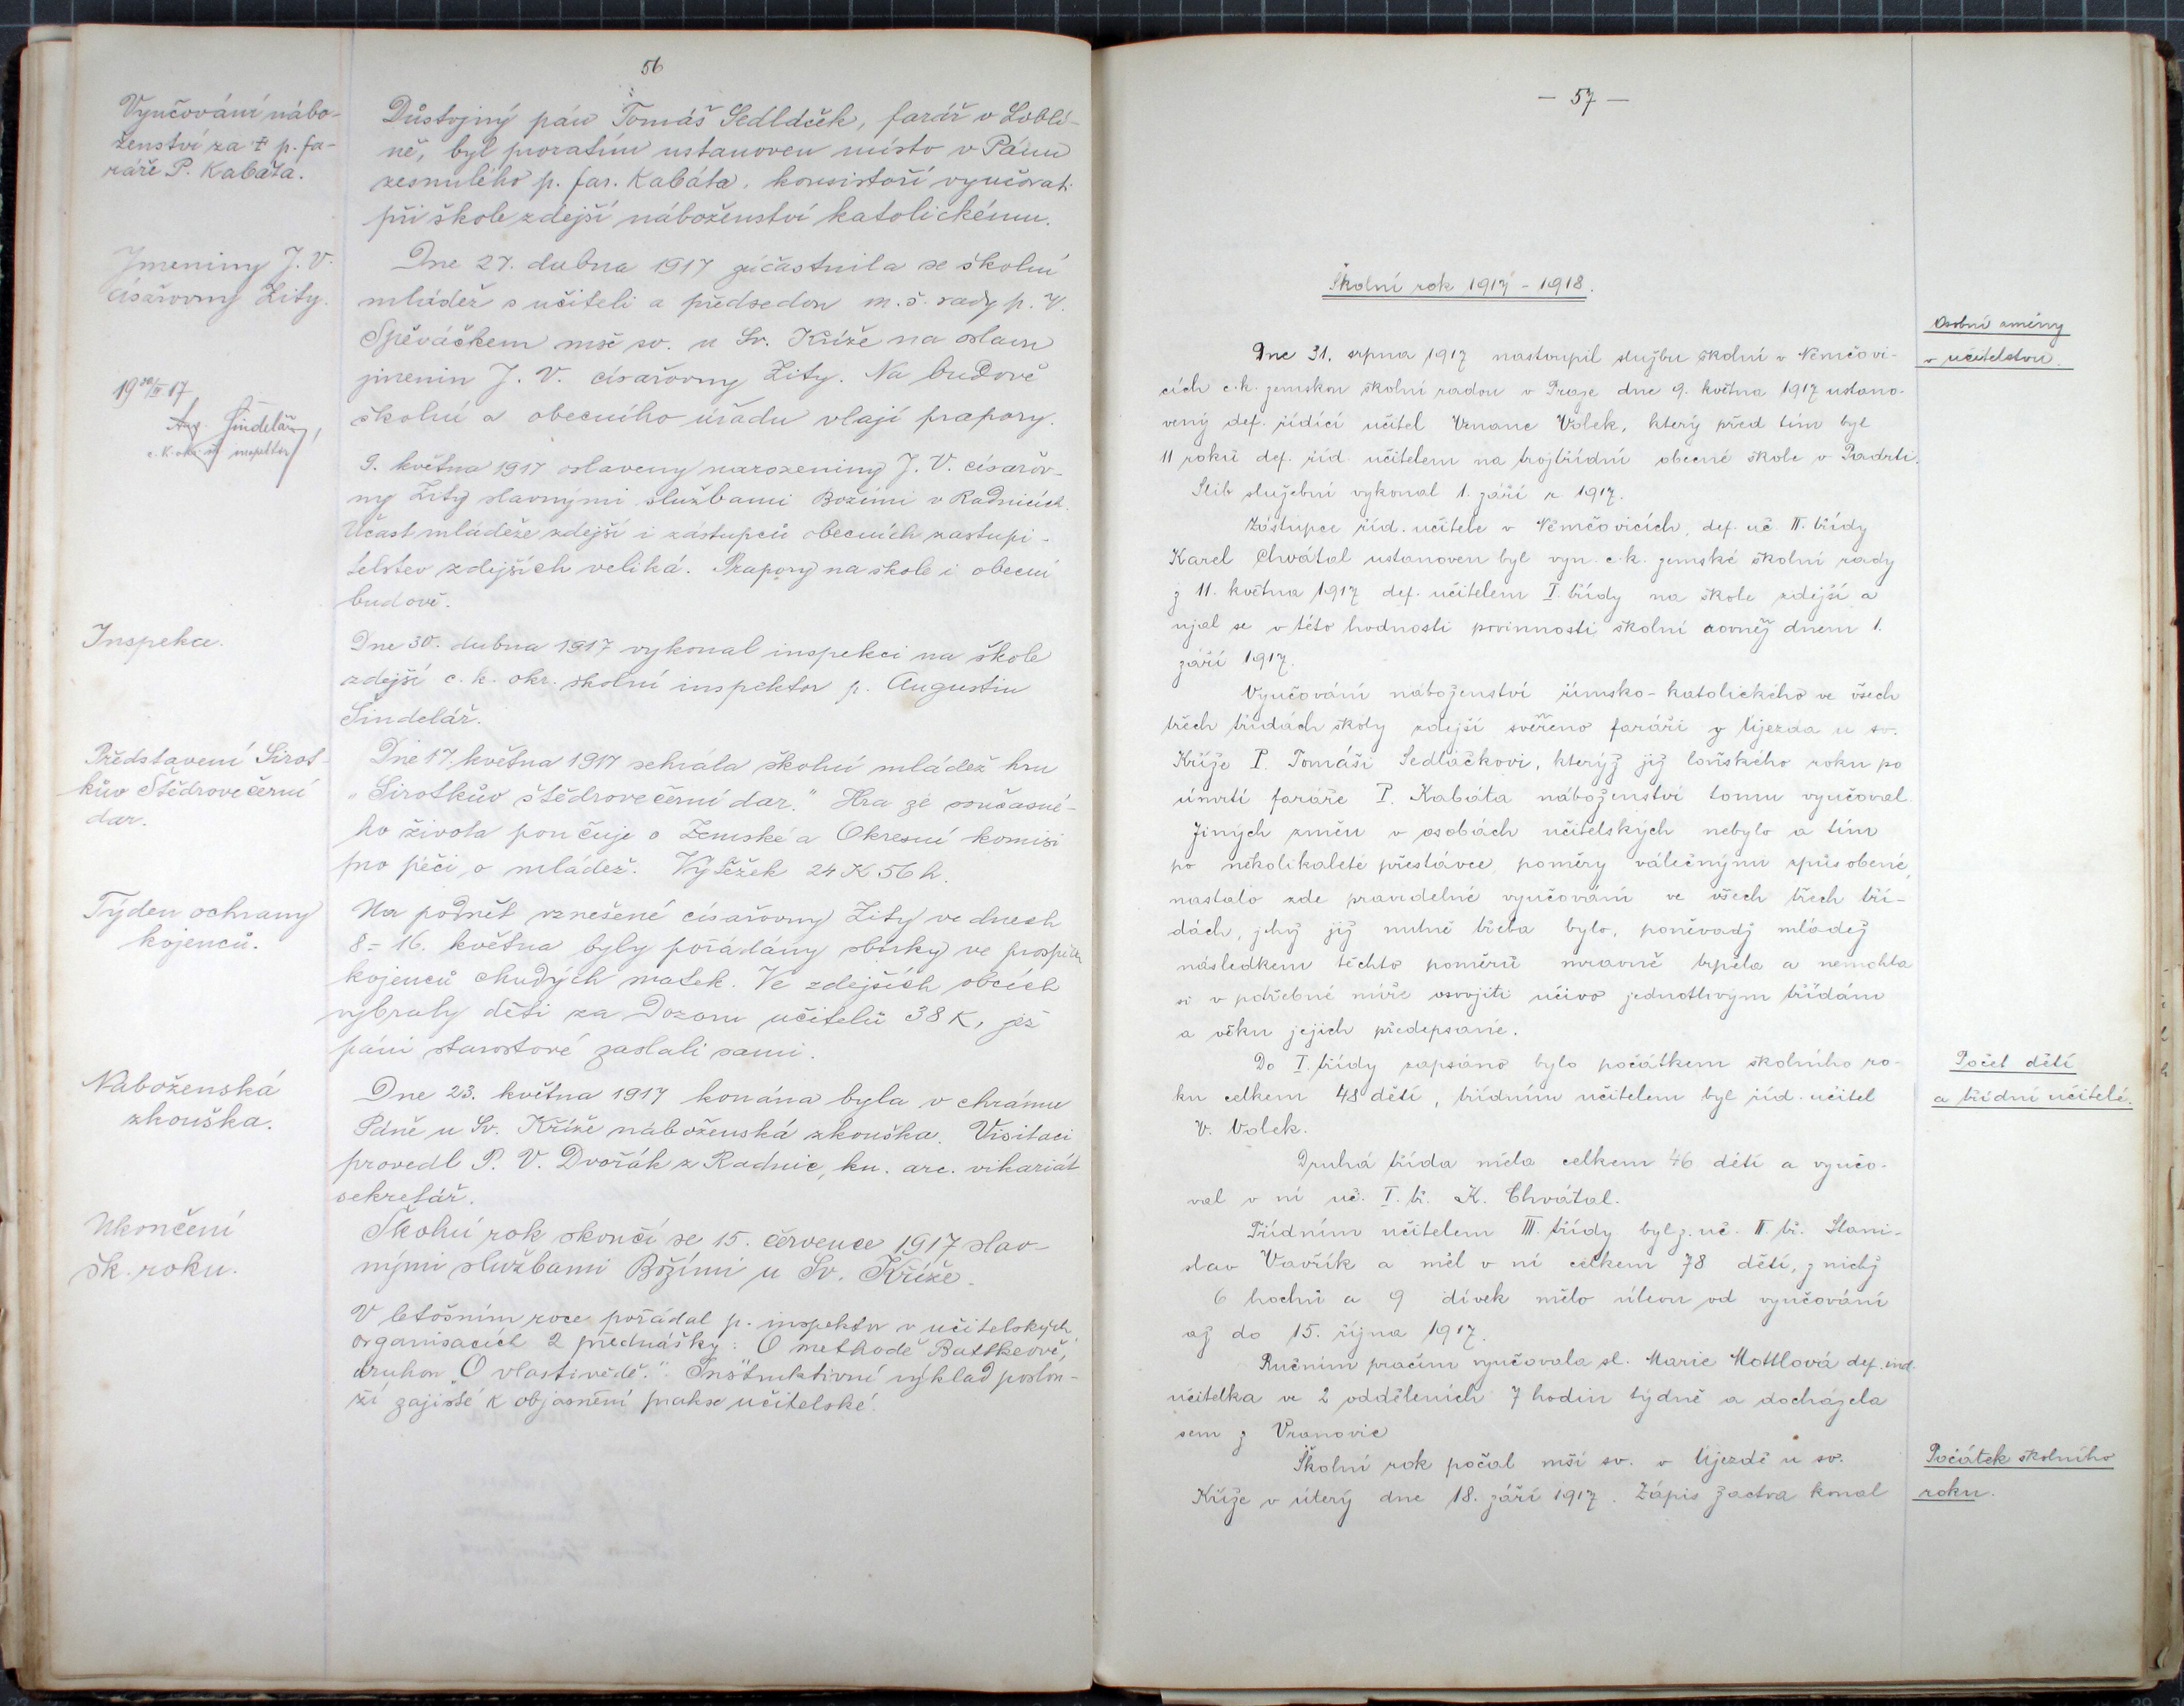 56
Vyučování nábo-
ženství za † p. fa-
ráře P. Kabáta.
Důstojný pán Tomáš Sedláček, farář v Lobli-
ně, byl prozatím ustanoven místo v Pánu
zesnulého p. far. Kabáta, konsistoří vyučovati
při škole zdejší náboženství katolickému.
Jmeniny J. V.
císařovny Zity.
Dne 27. dubna 1917 zúčastnila se školní
mládež s učiteli a předsedou m. š. rady p. V.
Spěváčkem mše sv. u Sv. Kříže na oslavu
jmenin J. V. císařovny Zity. Na budově
školní a obecního úřadu vlají prapory.
19 30/IV 17
Aug. Šindelář,
c. k. okr. šk. inspektor
9. května 1917 oslaveny narozeniny J. V. císařov-
ny Zity slavnými službami Božími v Radnicích.
Účast mládeže zdejší i zástupců obecních zastupi-
telstev zdejších veliká. Prapory na škole i obecní
budově.
Inspekce.
Dne 30. dubna 1917 vykonal inspekci na škole
zdejší c. k. okr. školní inspektor p. Augustin
Šindelář.
Představení Sirot-
kův Štědrovečerní
dar.
Dne 17. května 1917 sehrála školní mládež hru
"Sirotkův štědrovečerní dar." Hra ze současné-
ho života poučuje o Zemské a Okresní komisi
pro péči o mládež. Výtěžek 24 K 56 h.
Týden ochrany
kojenců.
Na podnět vznešené císařovny Zity ve dnech
8 - 16. května byly pořádány sbírky ve prospěch
kojenců chudých matek. Ve zdejších obcích
vybraly děti za dozoru učitelů 38 K, jež
páni starostové zaslali sami.
Náboženská
zkouška.
Dne 23. května 1917 konána byla v chrámu
Páně u Sv. Kříže náboženská zkouška. Visitaci
provedl P. V. Dvořák z Radnic, kn. arc. vikariát
sekretář.
Ukončení
šk. roku.
Školní rok skončí se 15. července 1917 slav-
nými službami Božími u Sv. Kříže.
V letošním roce pořádal p. inspektor v učitelských
organisacích 2 přednášky: O methodě Butthkeově,
druhou „O vlastivědě." Instruktivní výklad poslou-
ží zajisté k objasnění prakse učitelské.
- 57 -
Školní rok 1917 - 1918.
Osobní změny
v učitelstvu.
Dne 31. srpna 1917 nastoupil službu školní v Němčovi-
cích c. k. zemskou školní radou v Praze dne 9. května 1917 ustano-
vený def. řídící učitel Venanc Volek, který před tím byl
11 roků def. říd. učitelem na trojtřídní obecné škole v Padrti.
Slib služební vykonal 1. září r. 1917.
Zástupce říd. učitele v Němčovicích, def. uč. II. třídy
Karel Chvátal ustanoven byl vyn. c. k. zemské školní rady
z 11. května 1917 def. učitelem I. třídy na škole zdejší a
ujal se v této hodnosti povinností školní rovněž dnem 1.
září 1917.
Vyučování náboženství římsko-katolického ve všech
třech třídách školy zdejší svěřeno faráři z Újezda u sv.
Kříže P. Tomáši Sedláčkovi, kterýž již loňského roku po
úmrtí faráře P. Kabáta náboženství tomu vyučoval.
Jiných změn v osobách učitelských nebylo a tím
po několikaleté přestávce, poměry válečnými způsobené,
nastalo zde pravidelné vyučování ve všech třech tří-
dách, jehož již nutně třeba bylo, poněvadž mládež
následkem těchto poměrů mravně trpěla a nemohla
si v potřebné míře osvojiti učivo jednotlivým třídám
a věku jejich předepsané.
Počet dětí
a třídní učitelé.
Do I. třídy zapsáno bylo počátkem školního ro-
ku celkem 48 dětí, třídním učitelem byl říd. učitel
V. Volek.
Druhá třída měla celkem 46 dětí a vyučo-
val v ní uč. I. tř. K. Chvátal.
Třídním učitelem III. třídy byl z. uč. II. tř. Stani-
slav Vavřík a měl v ní celkem 78 dětí, z nichž
6 hochů a 9 dívek mělo úlevu od vyučování
až do 15. října 1917.
Ručním pracím vyučovala sl. Marie Mottlová def. ind.
učitelka ve 2 odděleních 7 hodin týdně a docházela
sem z Vranovic
Počátek školního
roku.
Školní rok počal mší sv. v Újezdě u sv.
Kříže v úterý dne 18. září 1917. Zápis žactva konal